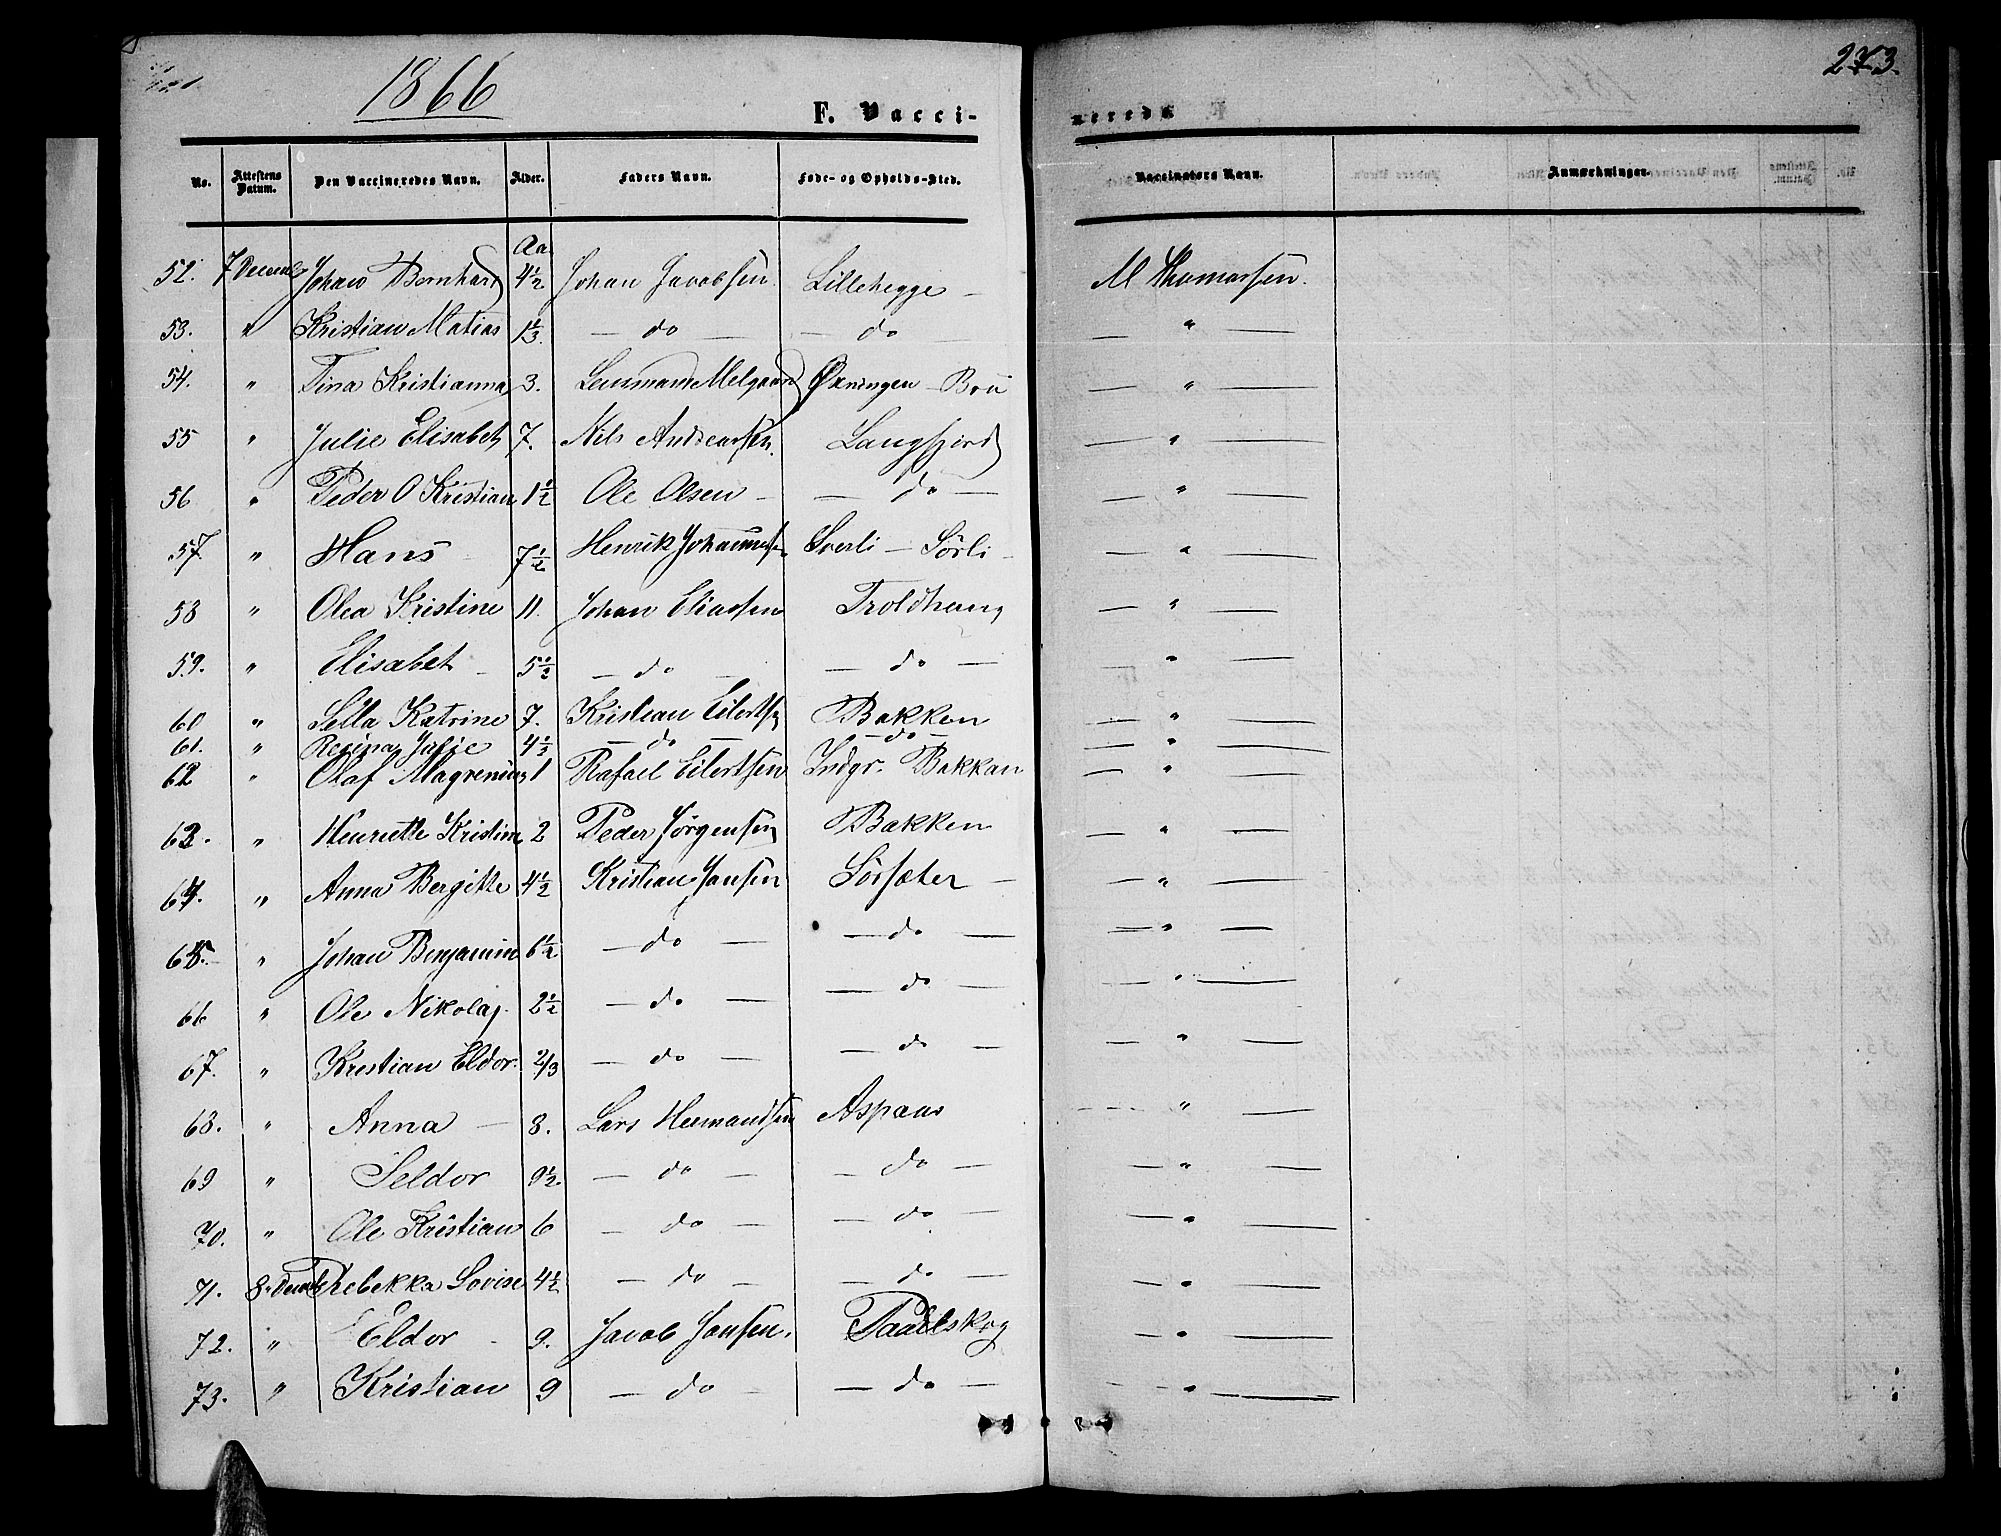 1866
273.
F. Vacci-
nerede
No. Attestens Datum. Den Vaccineredes Navn. Alder. Faders Navn. Føde- og Opholds-Sted. Vaccinators Navn. Anmærkninger.
Aar
52. 7 Decemb Johan Bernhard 4½ Johan Jacobsen Lillehegge — M Thomassen.
53. " Kristian Matias 1⅓. — do — — do — — " —
54. " Tina Kristianna 3. Lensmand Melgaard Øxningen — Brü — " —
55 " Julie Elisabet 7. Nils Andreassen. Langfjord — " —
56 " Peder O Kristian 1½ Ole Olsen — — do — — " —
57 " Hans — 7½ Henrik Johannesen Sverli — Sörli — — " —
58 " Olea Kristine 11. Johan Eliassen Troldhaug — " —
59. " Elisabet — 5½ — do — — do — — " —
60 " Sella Katrine 7. Kristian Eilertsen Bakken — " —
61. " Regina Julie 4⅓ — do — — do — — " —
62 " Olaf Magrenius 1 Rafael Eilertsen Indgr. Bakkan — " —
63. " Henriette Kristine 2 Peder Jörgensen Bakken — " —
64. " Anna Bergitte 4½ Kristian Jansen Sörsæter — — " —
65. " Johan Benjamin 6½ — do — — do — — " —
66 " Ole Nikolaj. 2½ — do — — do — " —
67. " Kristian Eldor. 2/3 — do — — do — " —
68. " Anna — 8. Lars Hermandsen Aspaas — " —
69 " Seldor 9½. — do — — do — — " —
70. " Ole Kristian 6 — do — — do — — " —
71. 8. Decemb Rebekka Lovise 4½ — do — — do — — " —
72. " Eldor — 9. Jacob Jansen. Paalskog — " —
73. " Kristian 9 — do — — do — — " —